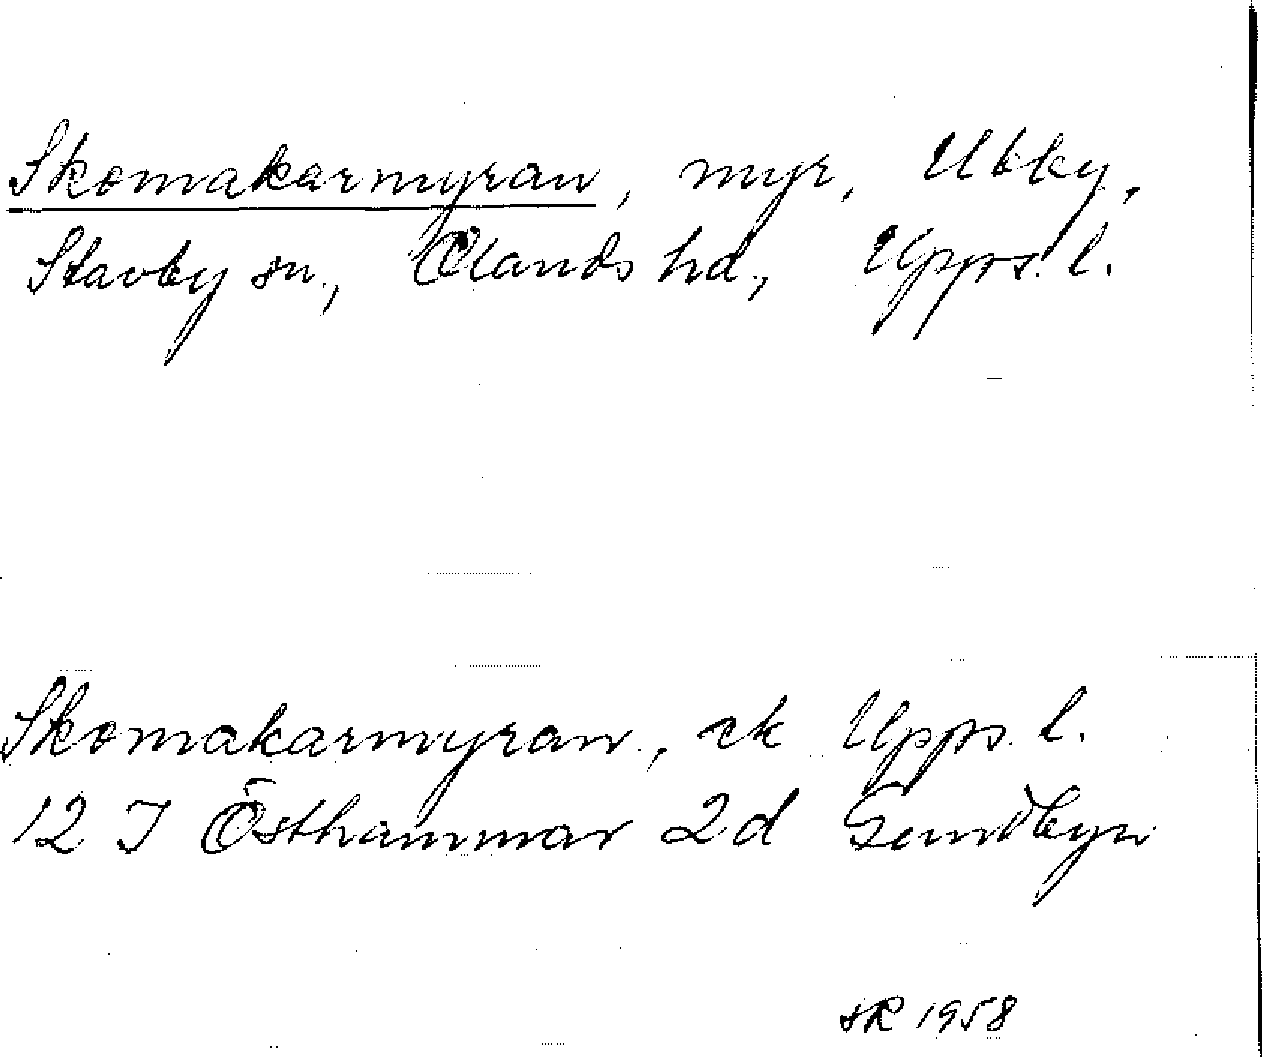 Skomakarmyran, myr, Ubby,
Stavby sn., Olands hd., Upps. l.
Skomakarmyran, ek Upps. l.
12 I Östhammar 2d Sundbyn
SR 1958